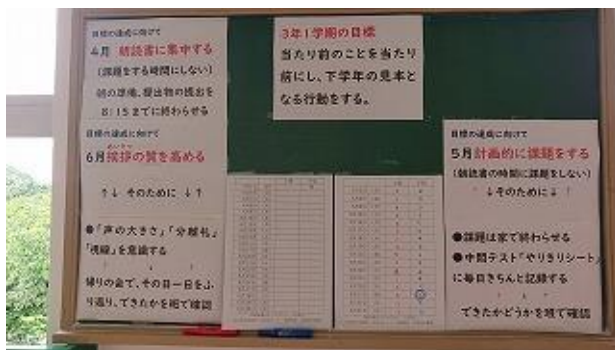 目標の達成に向けて
4月 朝読書に集中する
(課題をする時間にしない)
朝の準備、提出物の提出を
8:15までに終わらせる
目標の達成に向けて
6月挨拶の質を高める
あいさつ
↑↓ そのために ↓↑
●「声の大きさ」「分離礼」
「視線」を意識する
帰りの会で、その日一日をふ
り返り、できたかを班で確認
3年1学期の目標
当たり前のことを当たり
前にし、下学年の見本と
なる行動をする。
目標の達成に向けて
5月計画的に課題をする
(朝読書の時間に課題をしない)
↓そのために↓
●課題は家で終わらせる
●中間テスト「やりきりシート」
に毎日きちんと記録する
できたかどうかを班で確認